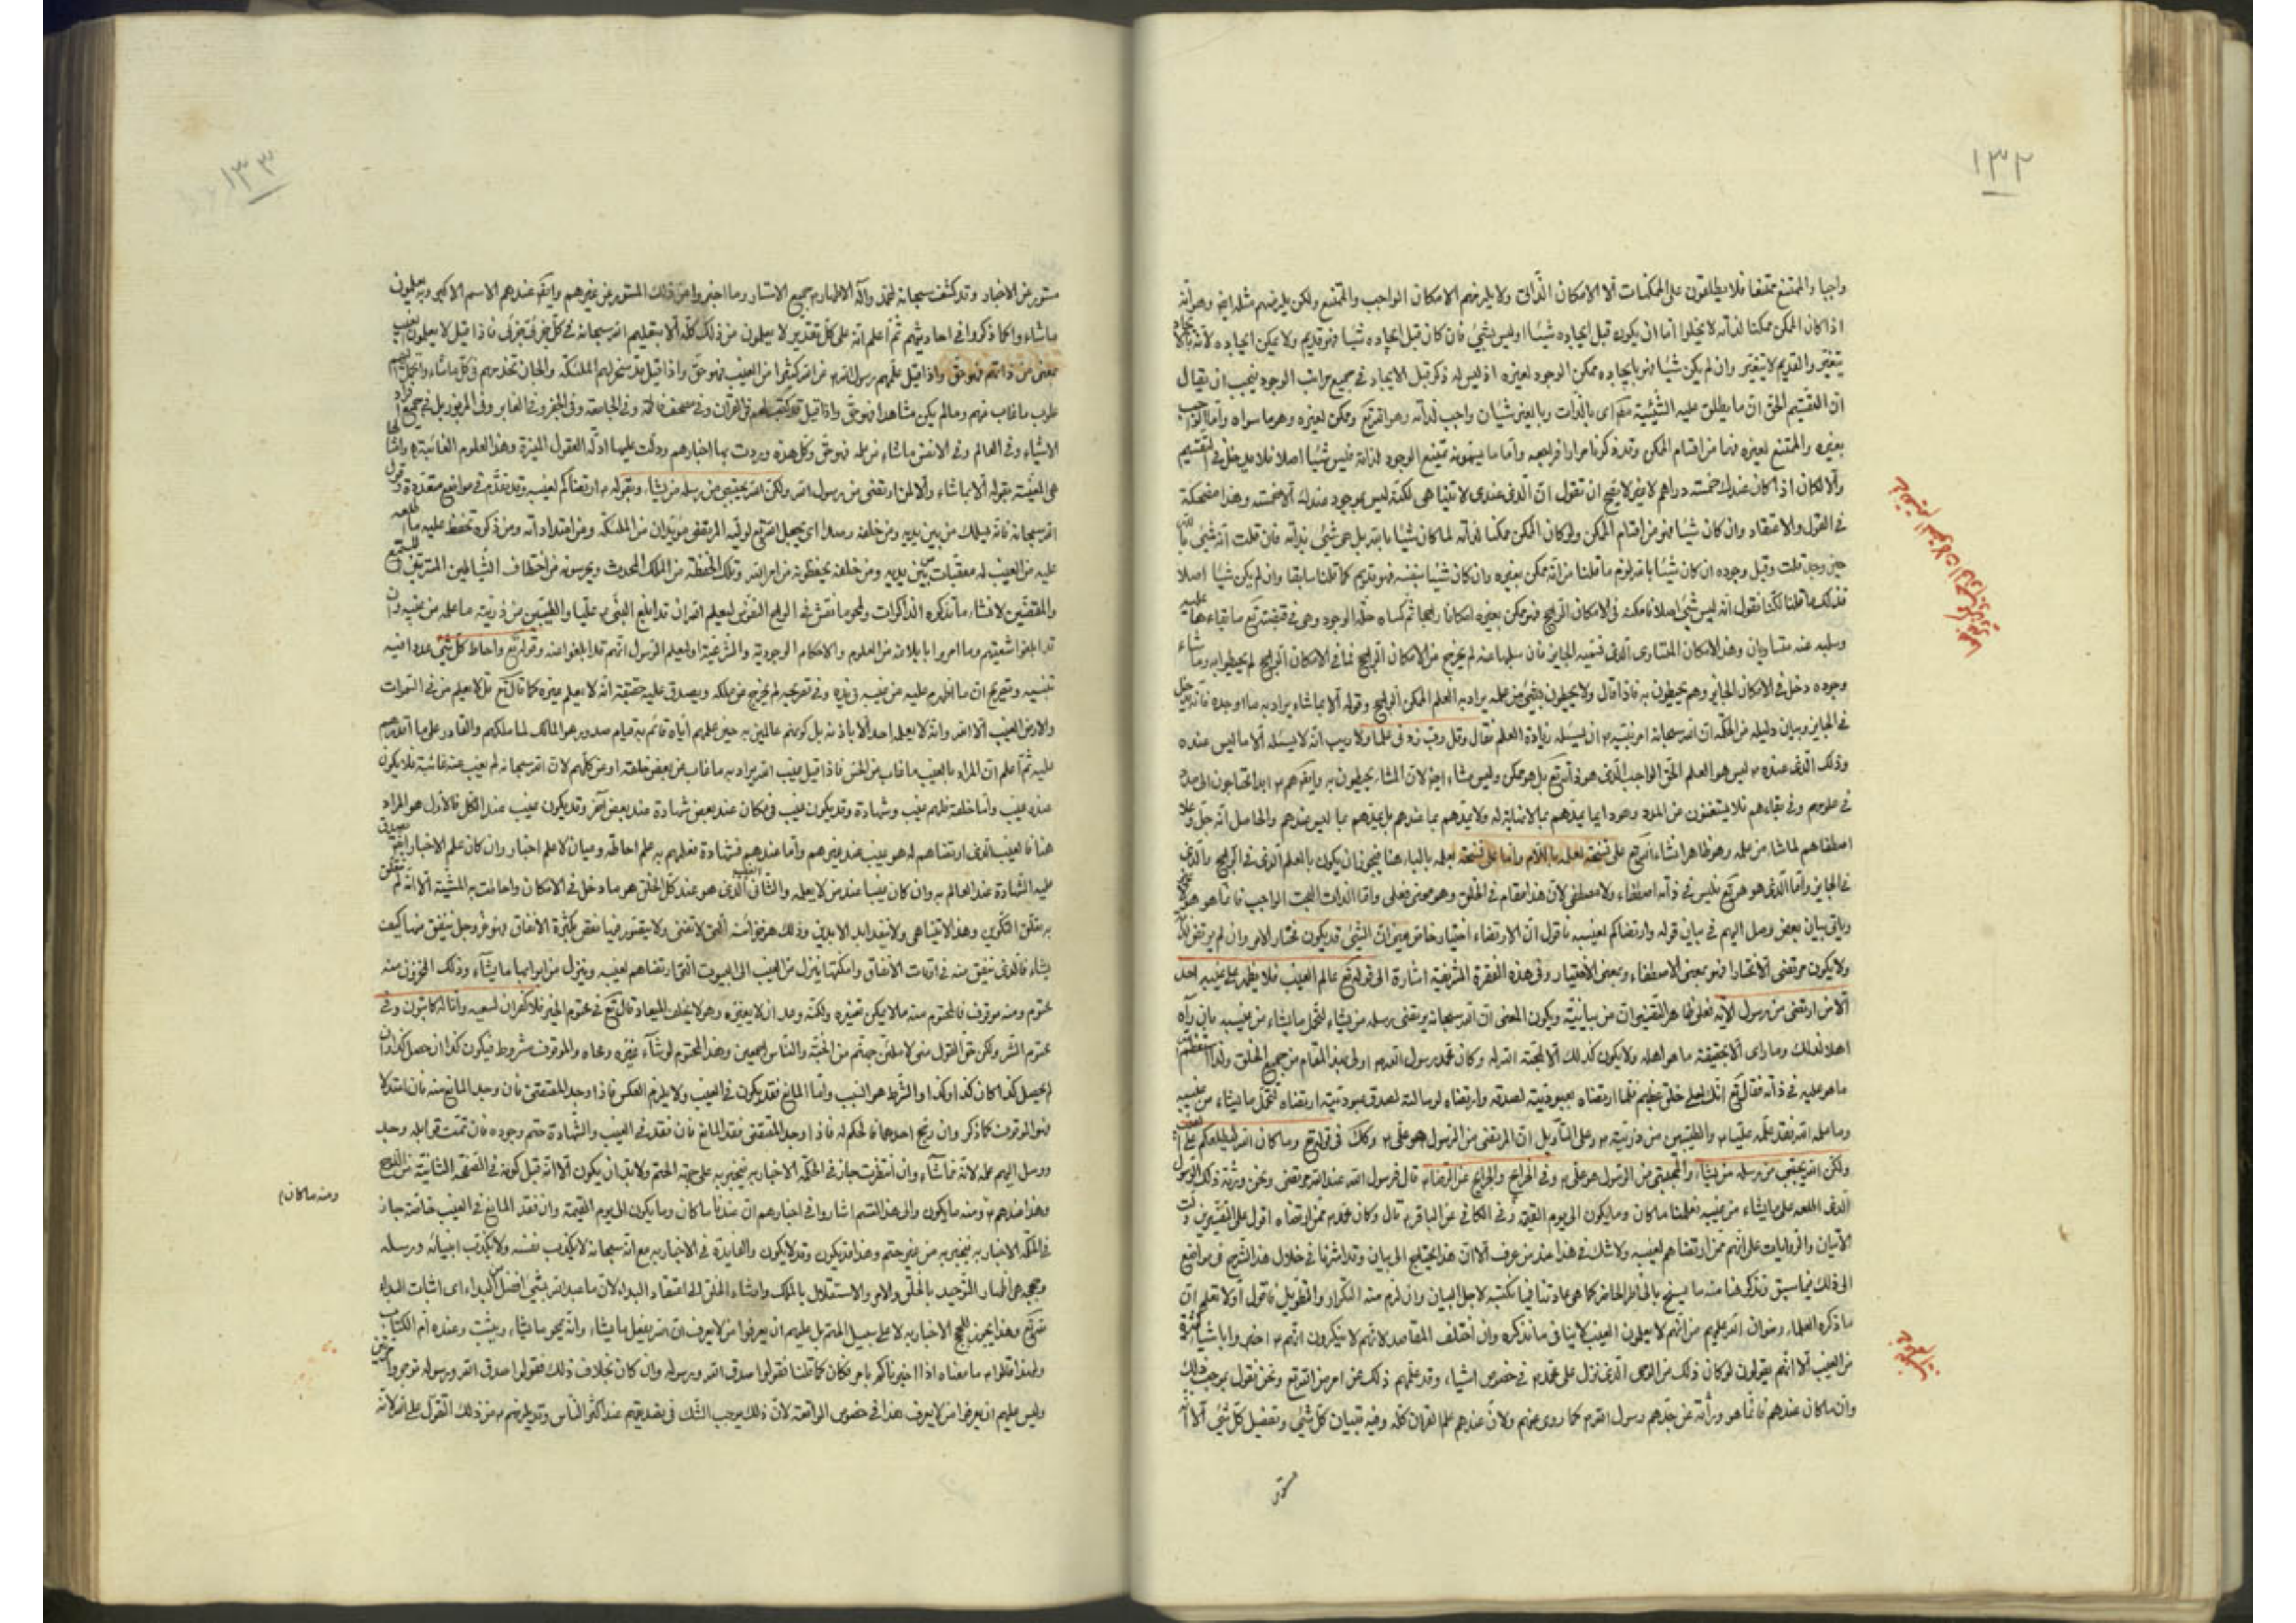 ١٣٢
واجبا والممتنع ممتنعا فلا يطلقون على الممكنات الا الامكان الذاتى ولا يلزمهم الامكان الواجب والممتنع ولكن يلزمهم مثله ايض وهو انه
اذا كان الممكن ممكنا لذاته لا يخلوا اما ان يكون قبل ايجاده شيئا او ليس بشئ فان كان قبل ايجاده شيئا فهو قديم ولا يمكن ايجاده لانه بالايجاد
يتغير والقديم لا يتغير وان لم يكن شيئا فهو بايجاده ممكن الوجود لغيره اذ ليس له ذكر قبل الايجاد فى جميع مراتب الوجود فيجب ان يقال
ان التقسيم الحق ان ما يطلق عليه الشيئية اى بالذات وبالغير شيئان واجب لذاته وهو الله تع وممكن لغيره وهو ما سواه واما الواجب
بغيره والممتنع لغيره فهما من اقسام الممكن وقد ذكرنا مرارا فراجعه واما ما يسمونه بممتنع الوجود لذاته فليس شيئا اصلا فلا يدخل فى التقسيم
والا لكان اذا كان عندك خمسة دراهم لا غير لا يقبح ان تقول ان الذى عندى لا يتناهى لكنه ليس بموجود عندك الا خمسة وهذا مضحكة
فى القول والاعتقاد وان كان شيئا فهو من اقسام الممكن ولو كان الممكن ممكنا لذاته لما كان شيئا بالله بل هو شئ بذاته فان قلت انه شئ بالله
حين وجد قلت وقبل وجوده ان كان شيئا بالله لزم ما قلنا من انه ممكن بغيره وان كان شيئا بنفسه فهو قديم كما قلنا سابقا وان لم يكن شيئا اصلا
فذلك ما قلنا لكنا نقول انه ليس شئ اصلا فامكنه فى الامكان الراجح فهو ممكن بغيره امكانا راجحا ثم كساه حلة الوجود وهو فى قبضته تع ما بقاءها عليه
وسلبه عنه متساويان وهذا الامكان المتساوى الذى فسميه الجايز فان سلبها عنه لم يخرج عن الامكان الراجح فما فى الامكان الراجح لم يحيطوا به وما شاء
وجوده دخل فى الامكان الجايز وهم يحيطون به فاذا قال ولا يحيطون بشئ من علمه يراد به العلم الممكن الراجح وقوله الا بما شاء يراد به ما اوجده فانه دخل
فى الجايز وبيان دليله من الحكمة ان الله سبحانه امر نبيه ص ان يسئله زيادة العلم فقال وقل رب زدنى علما ولا ريب انه لا يسئله الا ما ليس عنده
وذلك الذى عنده ليس هو العلم الحق الواجب الذى هو ذاته تع بل هو ممكن وليس مشاء ايض لان المشاء يحيطون به وايض هم ابدا محتاجون الى مدده
فى علومهم وفى بقاءهم فلا يستغنون عن المدد وهو انما يمدهم بما لا نهاية له ولا يمدهم بما عندهم بل يمدهم بما ليس عندهم والحاصل انه جل وعلا
اصطفاهم لما شاء من علمه وهو ظاهر انشاء الله تع على نسخة لعلمه باللام واما على نسخة بعلمه بالباء هنا فيجوز ان يكون بالعلم الذى فى الراجح والذى
فى الجايز واما الذى هو هو تع فليس فى ذاته اصطفاء ولا مصطفى لان هذا مقام فى الخلق وهو معنى فعلى واما الذات البحت الواجب فانما هو هو
وياتى بيان بعض وصل اليهم فى بيان قوله وارتضاكم لغيبه فاقول ان الارتضاء اختيار خاص بمعنى ان الشئ قد يكون مختارا لامر وان لم يرتض لذلك
ولا يكون مرتضى الا مختارا فهو بمعنى الاصطفاء وبمعنى الاختيار وفى هذه الفقرة الشريفة اشارة الى قوله تع عالم الغيب فلا يظهر على غيبه احد
الا من ارتضى من رسول الاية فعلى ظاهر التفسير ان من بيانية ويكون المعنى ان الله سبحانه يرتضى رسله من يشاء لتحمل ما يشاء من غيبه بان راه
اهلا لذلك وما راى الا بحقيقة ما هو اهله ولا يكون كذلك الا لمحبة الله له وكان محمد رسول الله ص اولى بهذا المقام من جميع الخلق ولذا استعظم
ما هو عليه فى ذاته فقال تع انك لعلى خلق عظيم فلما ارتضاه بعبوديته لصدقه وارتضاه لرسالته لصدق عبوديته ارتضاه لتحمل ما يشاء من غيبه
وما علمه الله فقد علمه عليا والطيبين من ذريته وعلى التاويل ان المرتضى من الرسول هو على وكك فى قوله تع وما كان الله ليطلعكم على الغيب
ولكن الله يجتبى من رسله من يشاء والمجتبى من الرسول هو على وفى الخرايج والجرايح عن الرضا قال فرسول الله عند الله مرتضى ونحن ورثة ذلك الرسول
الذى اطلعه على ما يشاء من غيبه فعلمنا ما كان وما يكون الى يوم القيمة وفى الكافى عن الباقر قال وكان محمد ممن ارتضاه اقول على التفسيرين دلت
الايتان والروايات على انهم ممن ارتضاهم لغيبه ولا شك فى هذا عند من عرف الا ان هذا يحتاج الى بيان وقد اشرنا فى خلال هذا الشرح فى مواضع
الى ذلك فيما سبق ونذكر هنا منه ما يسنح بالخاطر الحاضر كما هو عادتنا فيما نكتبه لاجل البيان وان لزم منه التكرار والتطويل فاقول اولا تعلم ان
ما ذكره العلماء رضوان الله عليهم من انهم لا يعلمون الغيب لا ينافى ما نذكره وان اختلف المقاصد لانهم لا ينكرون انهم اخبروا باشياء كثيرة
من الغيب الا انهم يقولون لو كان ذلك من الوحى الذى نزل على محمد فى خصوص اشياء وقد علمهم ذلك عن امر من الله تع ونحن نقول بموجب ذلك
وان ما كان عندهم فانما هو وراثة عن جدهم رسول الله كما روى عنهم ولان عندهم علم القران كله وفيه تبيان كل شئ وتفصيل كل شئ الا انه
مستور
١٣٣
مستور عن الاخبار وقد كشف سبحانه لمحمد وآله الاطهار جميع الاستار وما اخبروا من ذلك المستور عن غيرهم وايض عندهم الاسم الاكبر وبه يعلمون
ما شاءوا كما ذكروا فى احاديثهم ثم اعلم انه على كل تقدير لا يعلمون من ذلك كله الا بتعليم الله سبحانه فى كل جزئى جزئى فاذا قيل لا يعلمون الغيب
بمعنى من ذاتهم فهو حق واذا قيل علمهم رسول الله عن الله كثيرا من الغيب فهو حق واذا قيل قد سخر لهم الملئكة والجان تخدمهم فى كل ما شاءوا
علوب ما غاب عنهم وما لم يكن مشاهدا فهو حق واذا قيل قد كتب لهم فى القرآن وفى مصحف فاطمة وفى الجامعة وفى الجفر وفى الغابر وفى المزبور بل فى جميع افراد
الاشياء وفى العالم وفى الانفس ما شاء من علمه فهو حق وكل هذه وردت بها اخبارهم ودلت عليها ادلة العقول المنيرة وهذا العلوم الغائبة
هى المعينة بقوله الا بما شاء والا لمن ارتضى من رسول الله ولكن الله يجتبى من رسله من يشاء وبقوله ارتضاكم لغيبه وقد تقدم فى مواضع متعددة وقول
الله سبحانه فانه يسلك من بين يديه ومن خلفه رصدا اى يجعل الله تع لوليه المرتضى مؤيدان من الملئكة ومن امتداداته ومن ذكره تحفظ عليه ما اطلعه
عليه من الغيب له معقبات من بين يديه ومن خلفه يحفظونه من امر الله وتلك الحفظة من الملك المحدث ويحرسونه من اختطاف الشياطين
قد ابلغوا شيعتهم وما امروا بابلاغه من العلوم والاحكام الوجودية والشرعية او ليعلم الرسول انهم قد ابلغوا عنه وقوله تع واحاط كل شئ عددا فيه
تنبيه وتصريح ان ما اظهره عليه من غيبه فى يده وفى تصريحه لم يخرج عن ملكه ويصدق عليه حقيقة انه لا يعلم غيره كما قال تع قل لا يعلم من فى السموات
والارض الغيب الا الله وانه لا يعلمه احد الا باذنه بل كونهم عالمين به حين علمهم اياه قائم به قيام صدور هو المالك لما ملكهم والقادر على ما اقدرهم
عليه ثم اعلم ان المراد بالغيب ما غاب عن الحس فاذا قيل غيب الله يراد به ما غاب عن بعض خلقه او عن كلهم لان الله سبحانه لم يغب عنه غائبة فلا يكون
عنده غيب وانما خلقه فلهم غيب وشهادة وقد يكون غيب فى مكان عند بعض شهادة عند بعض آخر وقد يكون غيب عند الكل فالاول هو المراد
هنا فالغيب الذى ارتضاهم له هو غيب عند غيرهم واما عندهم فشهادة فعلمهم به علم احاطة وعيان لا علم اخبار وان كان علم الاخبار
عليه الشهادة عند العالم به وان كان غيبا عند من لا يعلمه والثانى الغيب الذى هو عند كل الخلق هو ما دخل فى الامكان واحاطت به المشية الا انه لم يتعلق
به تعلق التكوين وهذا لا يتناهى ولا ينفد ابد الابدين وذلك هو خزائنه التى لا تفنى ولا يتصور فيها نقص بكثرة الانفاق فهو عز وجل ينفق منها كيف
يشاء فالذى ينفق منه فى اوقات الانفاق وامكنتها ينزل من الغيب الى البيوت التى ارتضاهم لغيبه وينزل من ابوابها ما يشاء وذلك المخزون منه
محتوم ومنه موقوف فالمحتوم منه ما لا يمكن تغييره ولكنه وعد ان لا يغيره وهو لا يخلف الميعاد قال تع فى محتوم الخير فلا كفران لسعيه وانا له كاتبون وفى
محتوم الشر ولكن حق القول منى لاملئن جهنم من الجنة والناس اجمعين وهذا المحتوم لو شاء غيره ومحاه والموقوف مشروط فيكون كذا ان حصل كذا وان
لم يحصل كذا كان كذا وكذا والشرط هو السبب واما المانع فقد يكون فى الغيب ولا يلزم العكس فاذا وجد المقتضى فان وجد المانع منه فان اعتدلا
فهو الموقوف كما ذكر وان رجح احدهما فالحكم له فاذا وجد المقتضى فقد المانع فان فقد فى الغيب والشهادة حتم وجوده فان تمت قوابله وجد
ووصل اليهم علمه لانه مما شاء وان انتظرت جاز فى الحكمة الاخبار به فيخبر به على جهة الحتم ولا بد ان يكون الا انه قبل كونه فى الصفحة الثانية من اللوح
وهذا عندهم ومنه ما يكون والى هذا القسم اشاروا فى اخبارهم ان عندنا ما كان وما يكون الى يوم القيمة وان فقد المانع فى الغيب خاصة جاز
ومنه ما كان
فى الحكمة الاخبار به فيخبر به من غير حتم وهذا قد يكون وقد لا يكون والفايدة فى الاخبار به مع انه سبحانه لا يكذب نفسه ولا يكذب انبيائه ورسله
وحججه هى اظهار التوحيد بالخلق والامر والاستقلال بالملك وارشاد الخلق الى اعتقاد البداء لان ما عبد الله بشئ افضل من البداء اى اثبات البداء
لله تع وهذا يجوز الاخبار به لا على سبيل الحتم بل عليهم ان يعرفوا من لا يعرف ان الله يفعل ما يشاء وانه يمحو ما يشاء ويثبت وعنده ام الكتاب
ولهذا قالوا ما معناه اذا اخبرناكم بامر فكان كما قلنا فقولوا صدق الله ورسوله وان كان بخلاف ذلك فقولوا صدق الله ورسوله توجروا مرتين
وليس عليهم ان يعرفوا من لا يعرف هذا فى خصوص الواقعة لان ذلك يوجب الشك فى تصديقهم عند اكثر الناس وقد يلزمهم من ذلك التقول على الله لانه